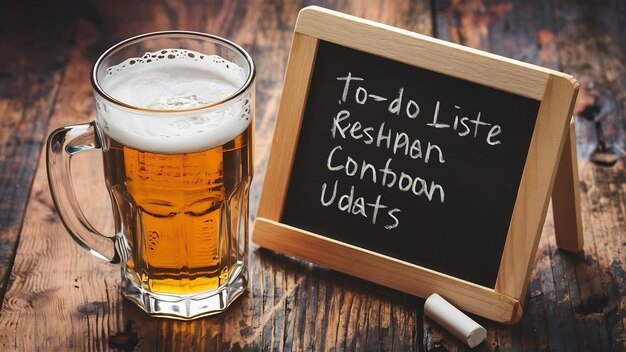 To-do Liste
Reshpan
Contboown
Udats